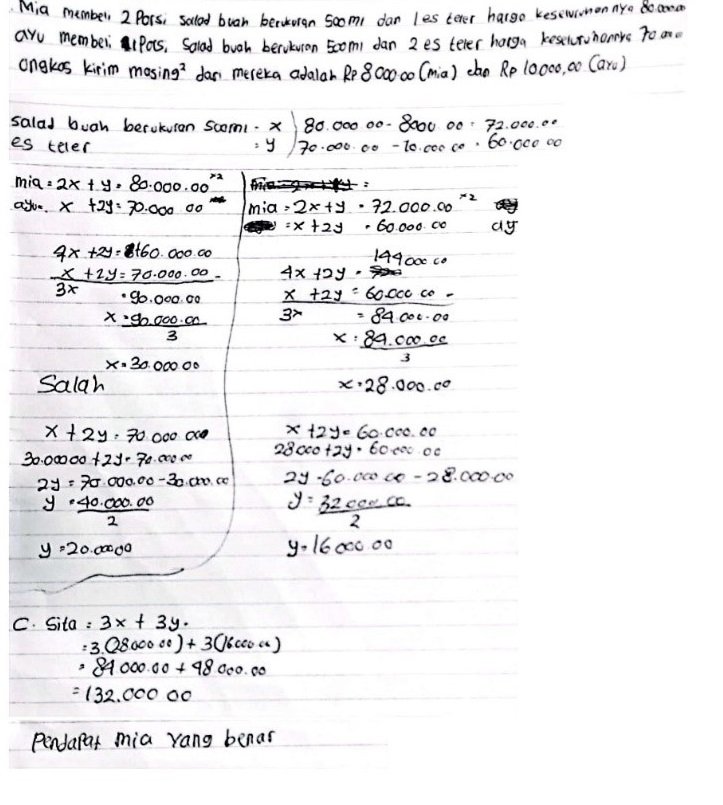 Mia membeli 2 Porsi salad buah berukuran 500ml dan 1 es teler harga keseluruhannya 80.000.00
ayu membeli 1 Pors, Salad buah berukuran 500ml dan 2 es teler harga keseluruhannya 70.000
ongkos kirim masing² dari mereka adalah Rp 8000.00 (mia) dan Rp 10.000,00 (ayu)
Salad buah berukuran 500ml = x ) 80.000.00 - 8000.00 = 72.000.00
es teler = y ) 70.000.00 - 10.000.00 = 60.000.00
mia = 2x + y = 80.000.00 x2
ayu = x + 2y = 70.000.00
4x + 2y = 160.000.00
x + 2y = 70.000.00 -
3x = 90.000.00
x = 90.000.00
3
x = 30.000.00
Salah
x + 2y = 70.000.000
30.000.00 + 2y = 70.000.00
2y = 70.000.00 - 30.000.00
y = 40.000.00
2
y = 20.000.00
mia = 2x + y = 72.000.00 x2
= x + 2y = 60.000.00 ay
144000.00
4x + 2y =
x + 2y = 60.000.00 -
3x = 84.000.00
x = 84.000.00
3
x = 28.000.00
x + 2y = 60.000.00
28000 + 2y = 60.000.00
2y = 60.000.00 - 28.000.00
y = 32000.00
2
y = 16000.00
C. Sita = 3x + 3y.
= 3.(28000.00) + 3(16000.00)
= 84000.00 + 48000.00
= 132.000.00
Pendapat mia yang benar